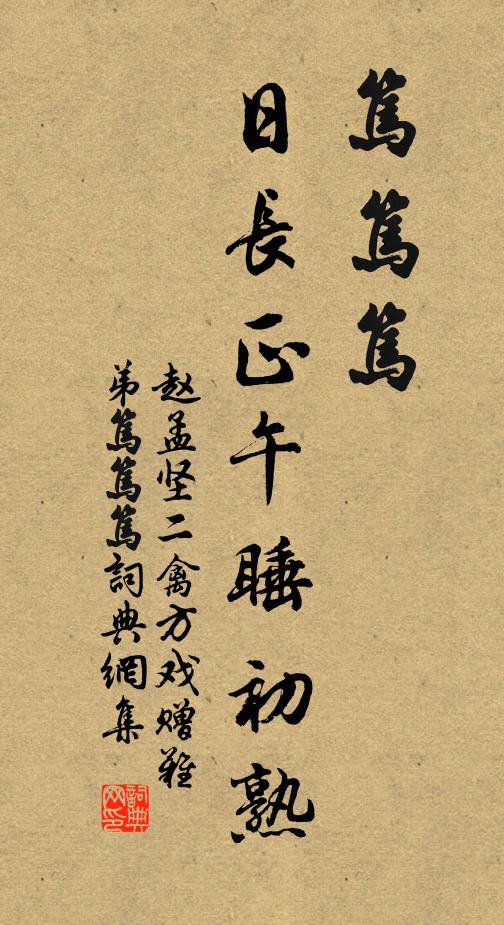 篤篤篤
日長正午睡初熟
赵孟坚二禽方戏赠难
弟篤篤篤詞典網集
詞典网印